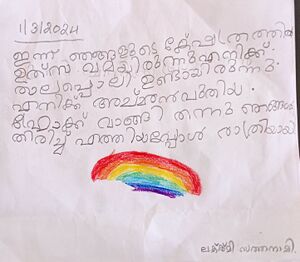 1/3/2024
ഇന്ന് ഞങ്ങളുടെ ക്ഷേത്രത്തിൽ
ഉത്സവമായിരുന്നു എനിക്ക്.
താലപ്പൊലി ഉണ്ടായിരുന്നു.
എനിക്ക് അച്ഛൻ പുതിയ
ഫ്രോക്ക് വാങ്ങി തന്നു ഞങ്ങൾ
തിരിച്ച് എത്തിയപ്പോൾ രാത്രിയായി
ലക്ഷ്മി